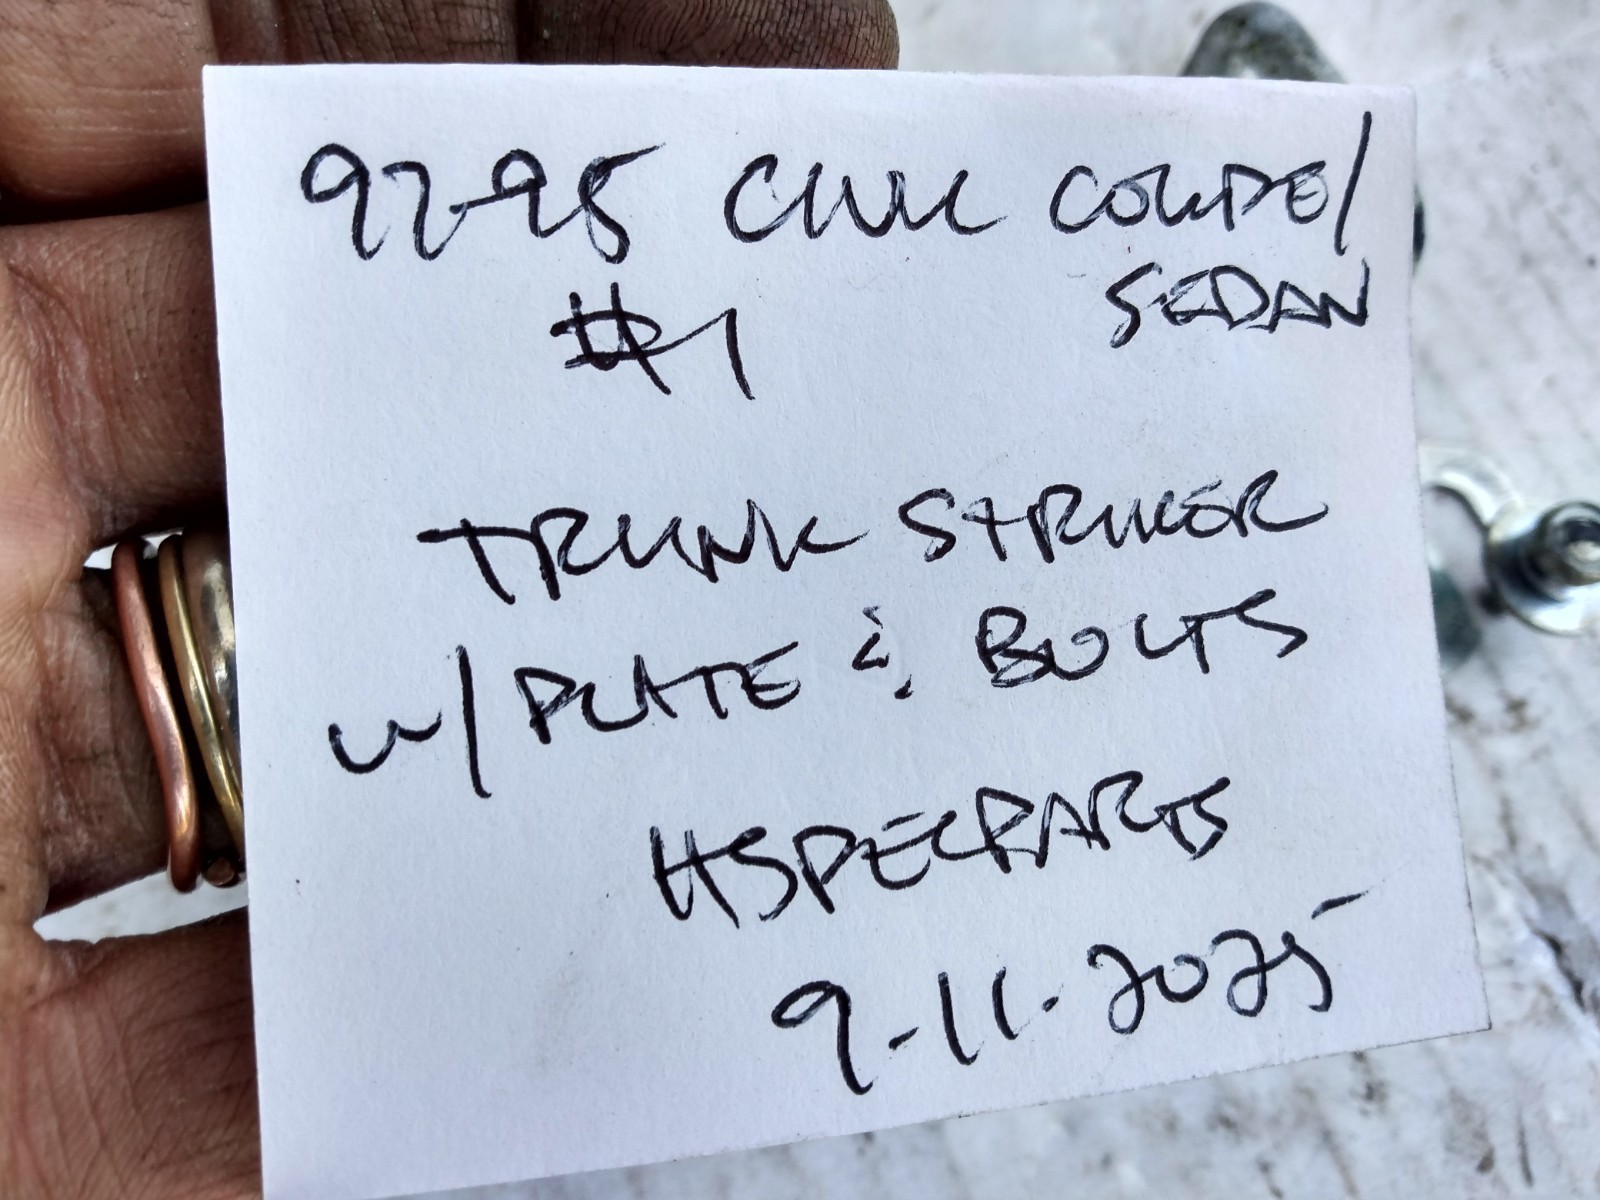 92-95 CIVIC COUPE/
SEDAN
#1
TRUNK STRIKER
W/PLATE & BOLTS
HSPECPARTS
9-11-2025